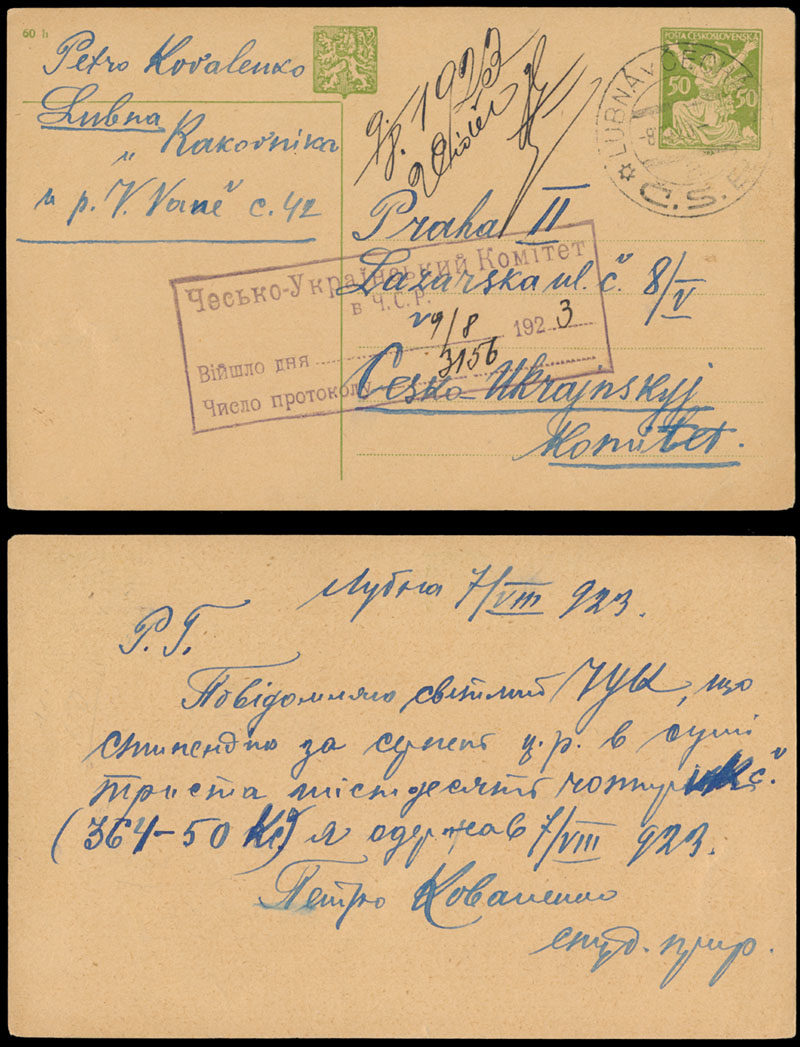 60 h
POŠTA ČESKOSLOVENSKÁ
50 50
Petro Kovalenko
Lubna
u Rakovníka
u p. V. Vaně č. 42
1923
LUBNÁ V ČECH
Č.S.R.
Praha II
Lazarska ul. č. 8/V
Česko-Ukrajinskyj
Komitet.
Чесько-Український Комітет
в Ч.С.Р.
Війшло дня 9/8 192 3
Число протоколу 3156
Лубна 7/VIII 923.
Р. Г.
Повідомляю світлий ЧУК, що
стипендію за серпень ц.р. в сумі
триста шістдесят чотири Kč.
(364-50 Kč) я одержав 7/VIII 923.
Петро Коваленко
студ. прир.